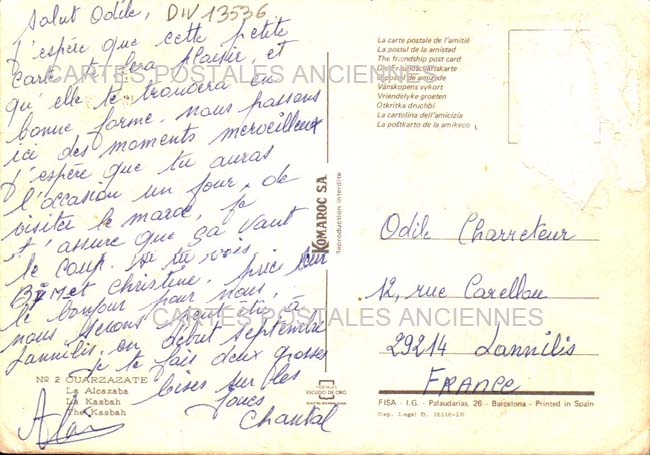 Salut Odile, DIV 13536
J'espère que cette petite
carte te fera plaisir et
qu'elle te trouvera en
bonne forme. nous passons
ici des moments merveilleux
J'espère que tu auras
l'occasion un jour, de
visiter le maroc, je
t'assure que ça vaut
le coup. Si tu vois
et Christine, leur
le bonjour pour nous,
nous serons à
Lannilis, en début septembre
Je te fais deux grosses
bises sur les
joues
Chantal
Alain
CARTES POSTALES ANCIENNES
CARTES POSTALES ANCIENNES
Nº 2 OUARZAZATE
La Alcazaba
La Kasbah
The Kasbah
KOMAROC S.A.
Reproduction interdite
POSTALES
ESCUDO DE ORO
La carte postale de l'amitié
La postal de la amistad
The friendship post card
Die Freundschaftskarte
Vänskopens vykort
Vriendelyke groeten
Otkritka druchbi
La cartolina dell'amicizia
La poŝtkarto de la amikeco
Odile Charreteur
12, rue Carellou
29214 Lannilis
FRANCE
FISA - I.G. - Palaudarias, 26 - Barcelona - Printed in Spain
Dep. Legal B. 16116-IX